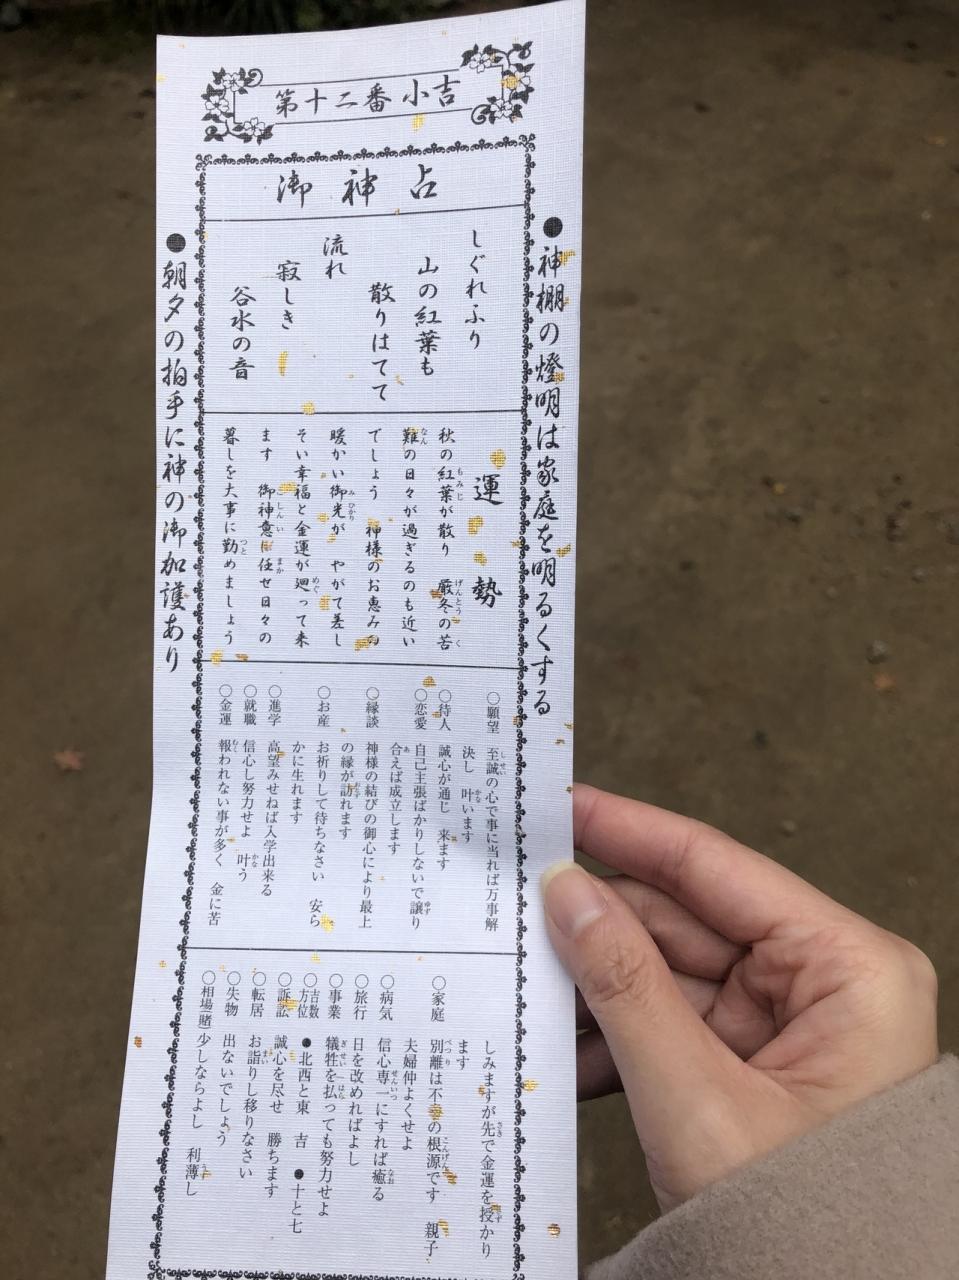 第十二番 小吉
御神占
●神棚の燈明は家庭を明るくする
しぐれふり
山の紅葉も
散りはてて
流れ
寂しき
谷水の音
●朝夕の拍手に神の御加護あり
運勢
秋の紅葉が散り 厳冬の苦
難の日々が過ぎるのも近い
でしょう 神様のお恵みの
暖かい御光が やがて差し
そい幸福と金運が廻って来
ます 御神意に任せ日々の
暮しを大事に勤めましょう
○願望 至誠の心で事に当れば万事解
決し 叶います
○待人 誠心が通じ 来ます
○恋愛 自己主張ばかりしないで譲り
合えば成立します
○縁談 神様の結びの御心により最上
の縁が訪れます
○お産 お祈りして待ちなさい 安ら
かに生れます
○進学 高望みせねば入学出来る
○就職 信心し努力せよ 叶う
○金運 報われない事が多く 金に苦
しみますが先で金運を授かり
ます
○家庭 別離は不幸の根源です 親子
夫婦仲よくせよ
○病気 信心専一にすれば癒る
○旅行 日を改めればよし
○事業 犠牲を払っても努力せよ
○吉数方位 ●北西と東 吉 ●十と七
○訴訟 誠心を尽せ 勝ちます
○転居 お詣りし移りなさい
○失物 出ないでしょう
○相場(賭) 少しならよし 利薄し